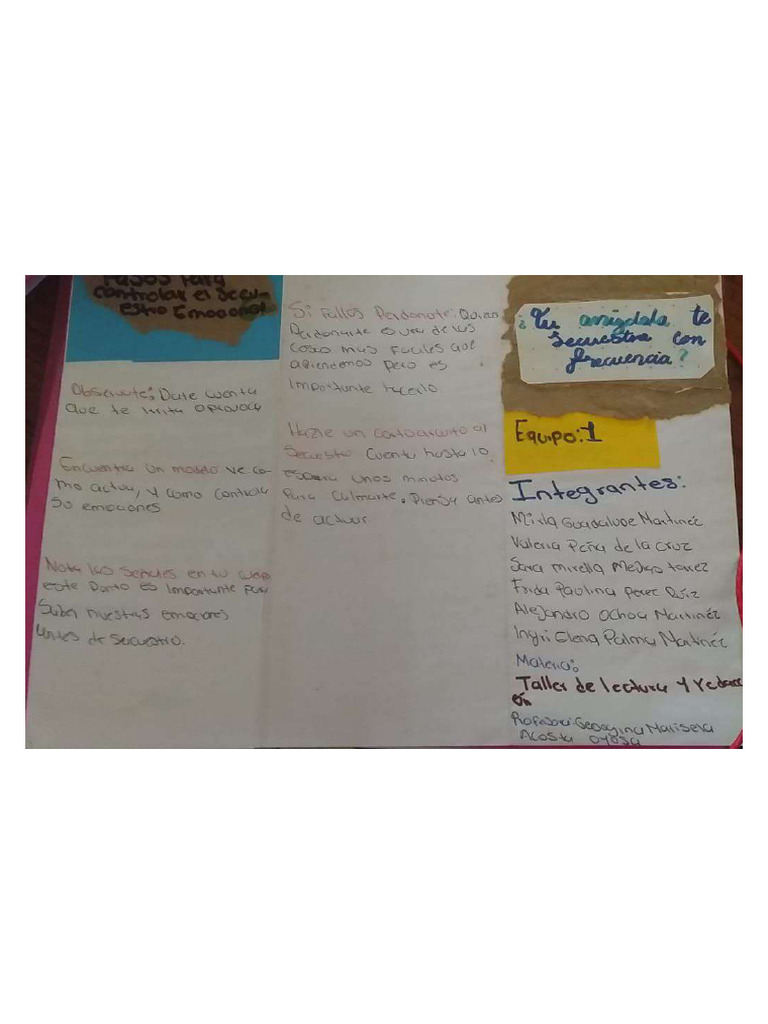 Pasos Para
controlar el Secu-
estro Emocional
Observate: Date cuenta
que te irrita o provoca
Encuentra un modelo ve co-
mo actua, y como controla
so emociones
Nota las señales en tu cuerpo
este Punto es importante para
Saber nuestras emociones
Antes de Secuestro.
Si Fallas Perdonate: Quizas
Perdonarte es una de las
cosas mas faciles que
aprendemos pero es
importante hacerlo.
Hazle un cortocircuito al
Secuestro Cuenta hasta 10,
espera unos minutos
Para Calmarte. Piensa antes
de actuar
¿Tu amígdala te
Secuestra con
frecuencia?
Equipo: 1
Integrantes:
Mirla Guadalupe Martinéz
Valeria Peña de la cruz
Sara Mirella torrez
Frida Paulina Perez Ruiz
Alejandro Ochoa Martinéz
Ingri Elena Palma Martinéz
Materia:
Taller de lectura y redacci
ón
Profesora: Georgina Marisela
Acosta